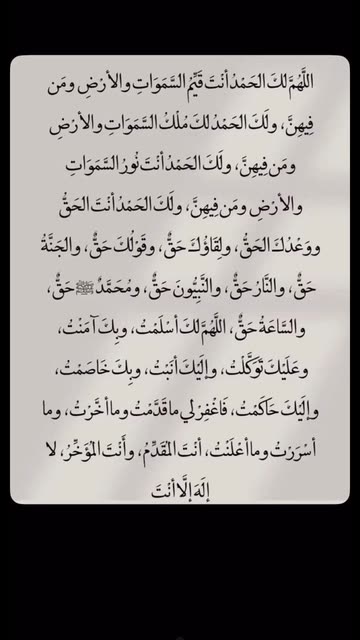 اللَّهُمَّ لَكَ الحَمْدُ أَنْتَ قَيِّمُ السَّمَوَاتِ والأرْضِ ومَن
فِيهِنَّ، ولَكَ الحَمْدُ لكَ مُلْكُ السَّمَوَاتِ والأرْضِ
ومَن فِيهِنَّ، ولَكَ الحَمْدُ أنْتَ نُورُ السَّمَوَاتِ
والأرْضِ ومَن فِيهِنَّ، ولَكَ الحَمْدُ أنْتَ الحَقُّ
ووَعْدُكَ الحَقُّ، ولِقَاؤُكَ حَقٌّ، وقَوْلُكَ حَقٌّ، والجَنَّةُ
حَقٌّ، والنَّارُ حَقٌّ، والنَّبِيُّونَ حَقٌّ، ومُحَمَّدٌ ﷺ حَقٌّ،
والسَّاعَةُ حَقٌّ، اللَّهُمَّ لكَ أسْلَمْتُ، وبِكَ آمَنْتُ،
وعَلَيْكَ تَوَكَّلْتُ، وإلَيْكَ أنَبْتُ، وبِكَ خَاصَمْتُ،
وإلَيْكَ حَاكَمْتُ، فَاغْفِرْ لي ما قَدَّمْتُ وما أخَّرْتُ، وما
أسْرَرْتُ وما أعْلَنْتُ، أنْتَ المُقَدِّمُ، وأَنْتَ المُؤَخِّرُ، لا
إلَهَ إلَّا أنْتَ